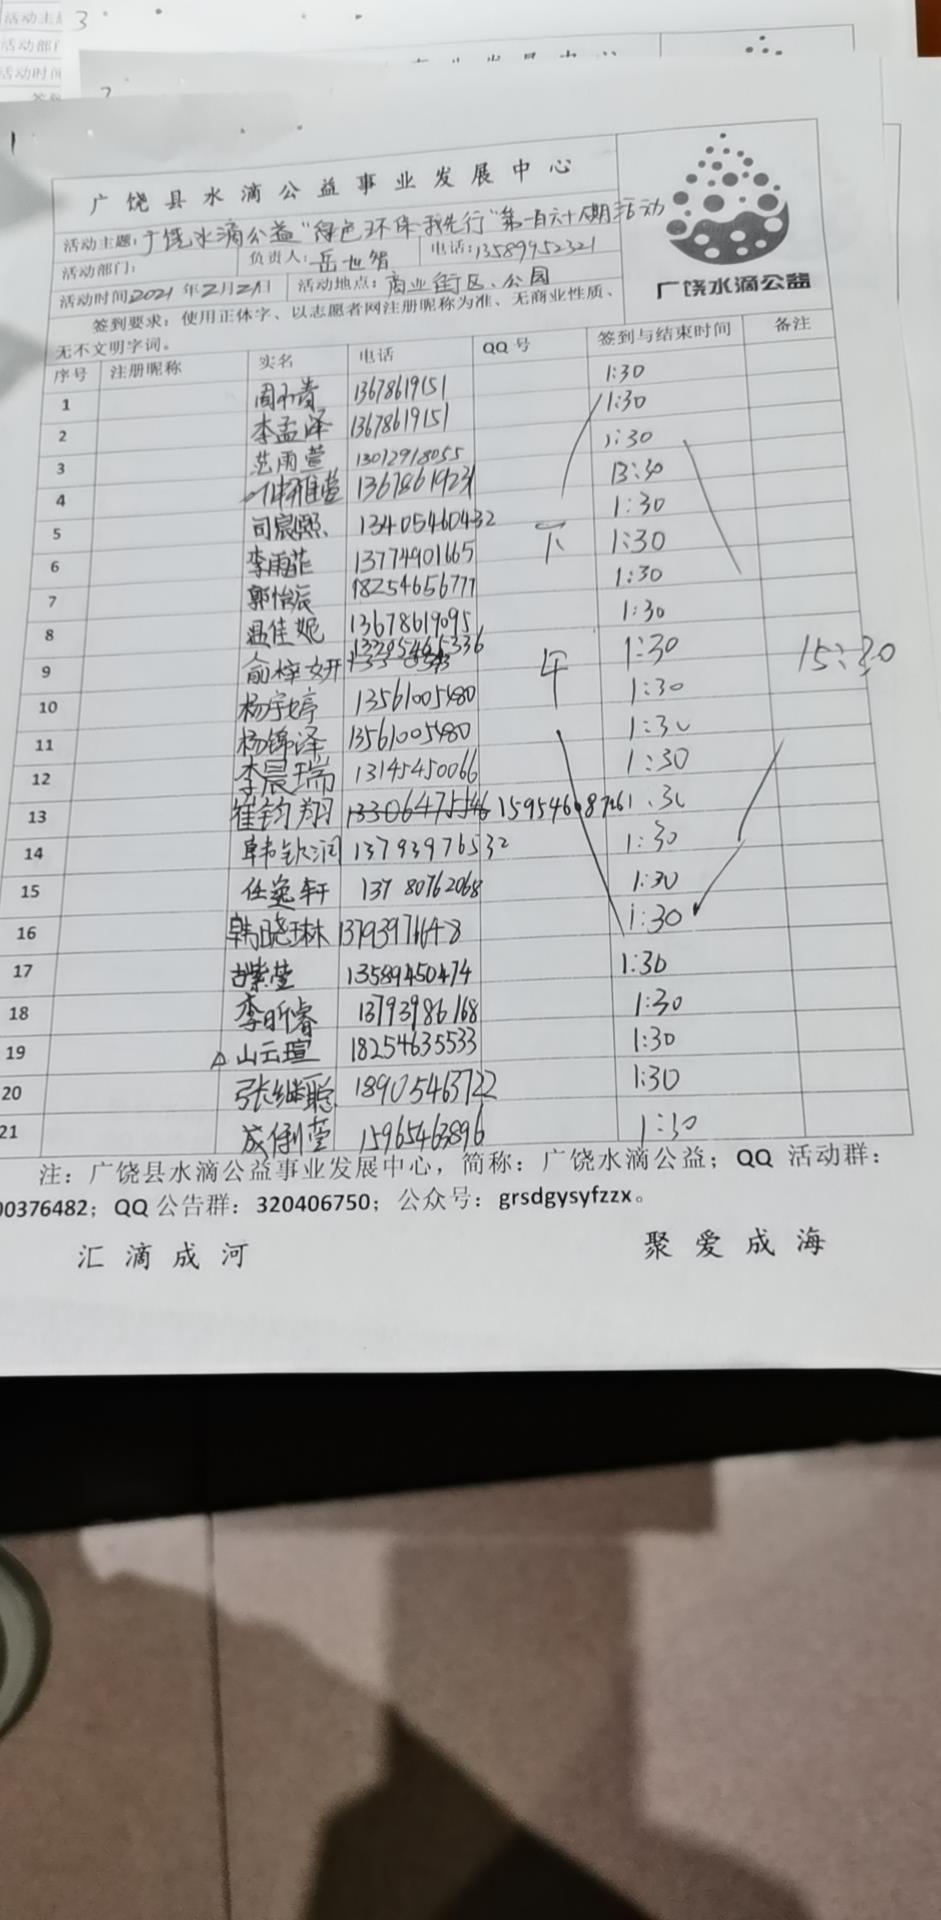 活动主题
3
活动部门
活动时间
广饶县水滴公益事业发展中心
活动主题：广饶水滴公益“绿色环保我先行”第一百六十八期活动
活动部门： 负责人：岳世智 电话：13589952321
活动时间2021年2月21日 活动地点：商业街区、公园
广饶水滴公益
签到要求：使用正体字、以志愿者网注册昵称为准、无商业性质、
无不文明字词。
序号 注册昵称 实名 电话 QQ号 签到与结束时间 备注
1 13678619151 1:30
2 李孟泽 13678619151 1:30
3 范雨萱 13012918055 1:30
4 雅萱 13678619231 13:30
5 司宸熙 13405460432 1:30
6 李雨菲 13774901665 下 1:30
7 郭怡辰 18254656777 1:30
8 温佳妮 13678619095 1:30
9 俞梓妍 13295465336 午 1:30 15:30
10 杨宇婷 13561005480 1:30
11 杨锦泽 13561005480 1:30
12 李晨瑞 13145450066 1:30
13 崔钧翔 13306475546 15954608726 1:30
14 韩钦润 13793976532 1:30
15 任逸轩 13780762068 1:30
16 韩晓琳 13793976648 1:30
17 紫莹 13589450474 1:30
18 李昕睿 13793986168 1:30
19 山云瑄 18254635533 1:30
20 张继聪 18905463722 1:30
21 成俐萱 15965463896 1:30
注：广饶县水滴公益事业发展中心，简称：广饶水滴公益；QQ 活动群：
00376482；QQ公告群：320406750；公众号：grsdgysyfzzx。
汇滴成河 聚爱成海